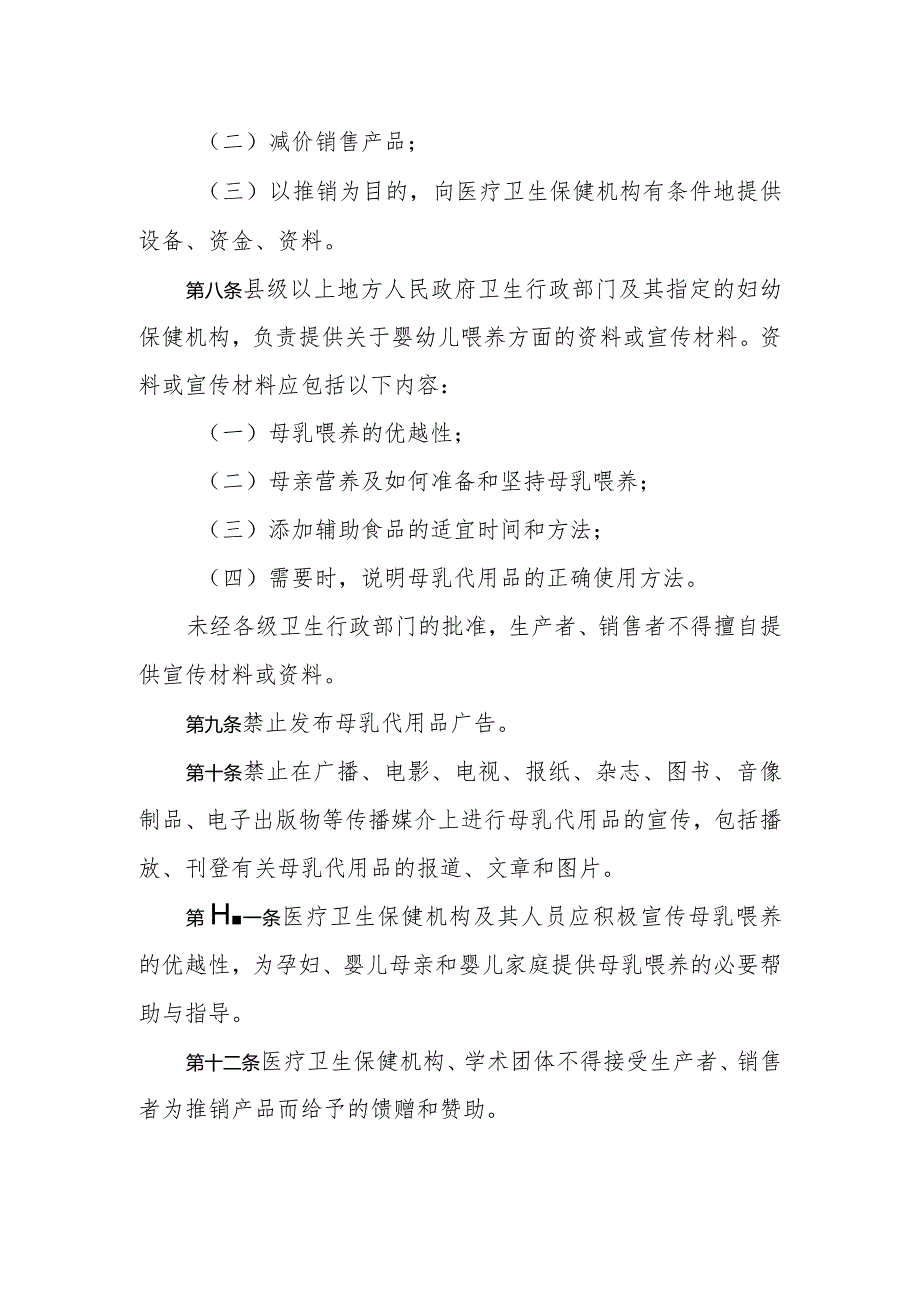 （二）减价销售产品；
（三）以推销为目的，向医疗卫生保健机构有条件地提供
设备、资金、资料。
第八条县级以上地方人民政府卫生行政部门及其指定的妇幼
保健机构，负责提供关于婴幼儿喂养方面的资料或宣传材料。资
料或宣传材料应包括以下内容：
（一）母乳喂养的优越性；
（二）母亲营养及如何准备和坚持母乳喂养；
（三）添加辅助食品的适宜时间和方法；
（四）需要时，说明母乳代用品的正确使用方法。
未经各级卫生行政部门的批准，生产者、销售者不得擅自提
供宣传材料或资料。
第九条禁止发布母乳代用品广告。
第十条禁止在广播、电影、电视、报纸、杂志、图书、音像
制品、电子出版物等传播媒介上进行母乳代用品的宣传，包括播
放、刊登有关母乳代用品的报道、文章和图片。
第H■一条医疗卫生保健机构及其人员应积极宣传母乳喂养
的优越性，为孕妇、婴儿母亲和婴儿家庭提供母乳喂养的必要帮
助与指导。
第十二条医疗卫生保健机构、学术团体不得接受生产者、销售
者为推销产品而给予的馈赠和赞助。